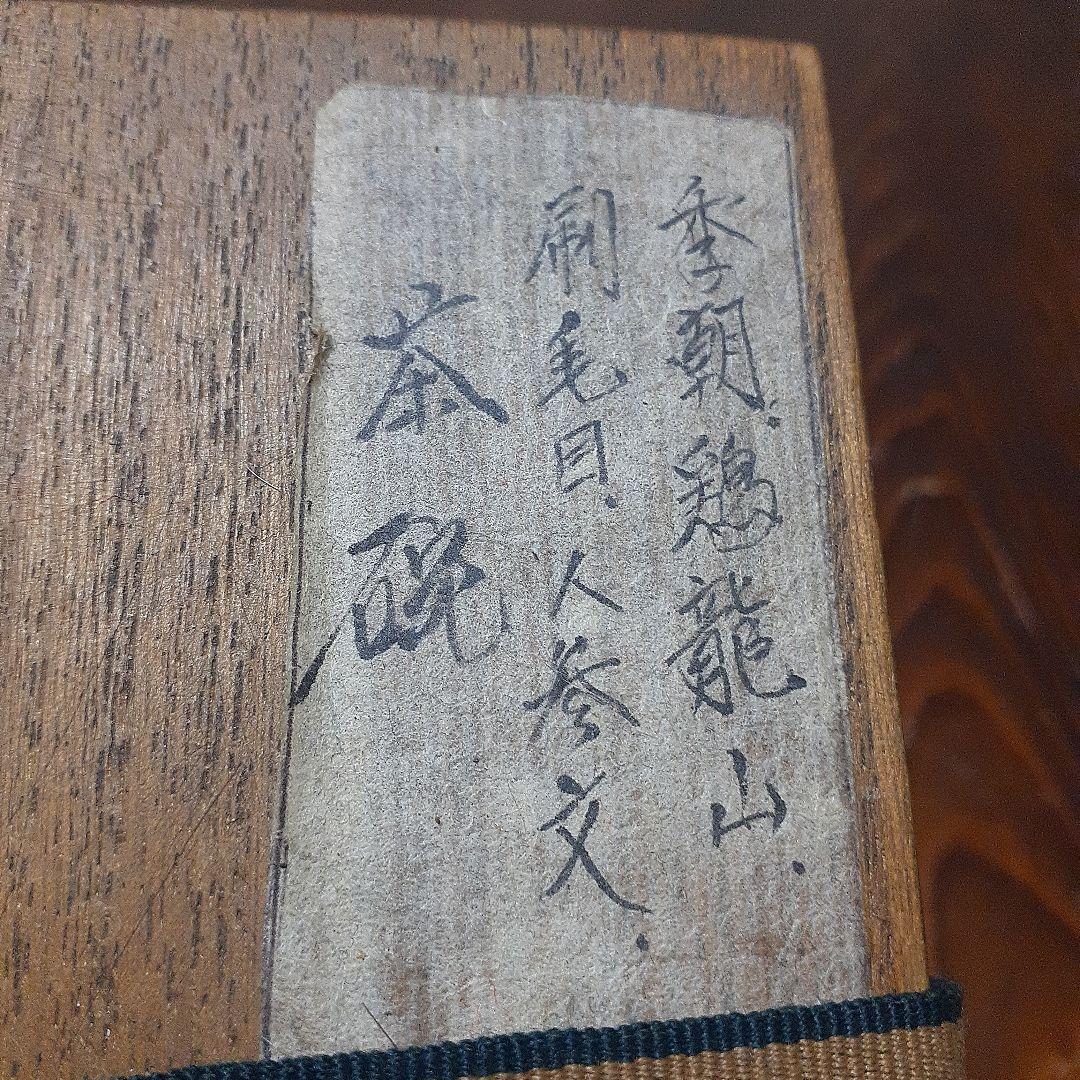 季朝.鶏龍山.
刷毛目.人参文.
茶碗